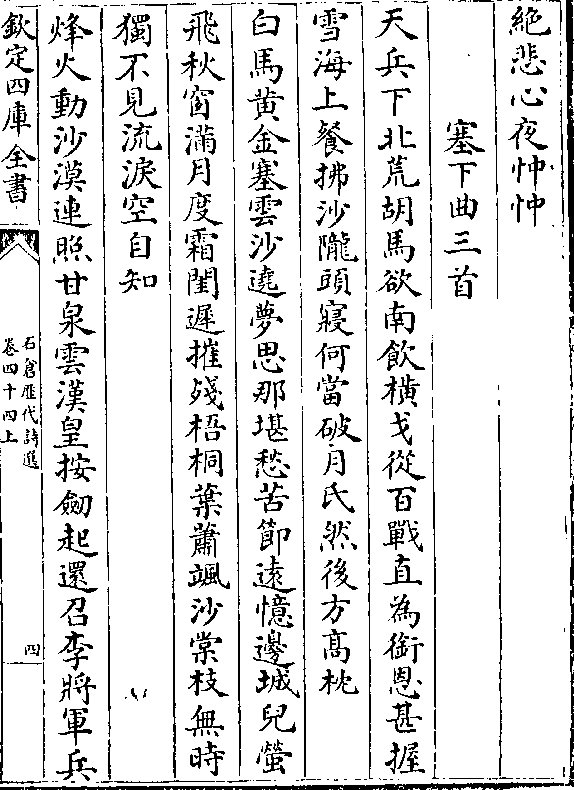 絶悲心夜忡忡
塞下曲三首
天兵下北荒胡馬欲南飲橫戈從百戰直為銜恩甚握
雪海上餐拂沙隴頭寢何當破月氏然後方髙枕
白馬黄金塞雲沙遶夢思那堪愁苦節遠憶邊城兒螢
飛秋窗滿月度霜閨遲摧殘梧桐葉蕭颯沙棠枝無時
獨不見流淚空自知
烽火動沙漠連照甘泉雲漢皇按劒起還召李將軍兵
欽定四庫全書
石倉歴代詩選
卷四十四上
四